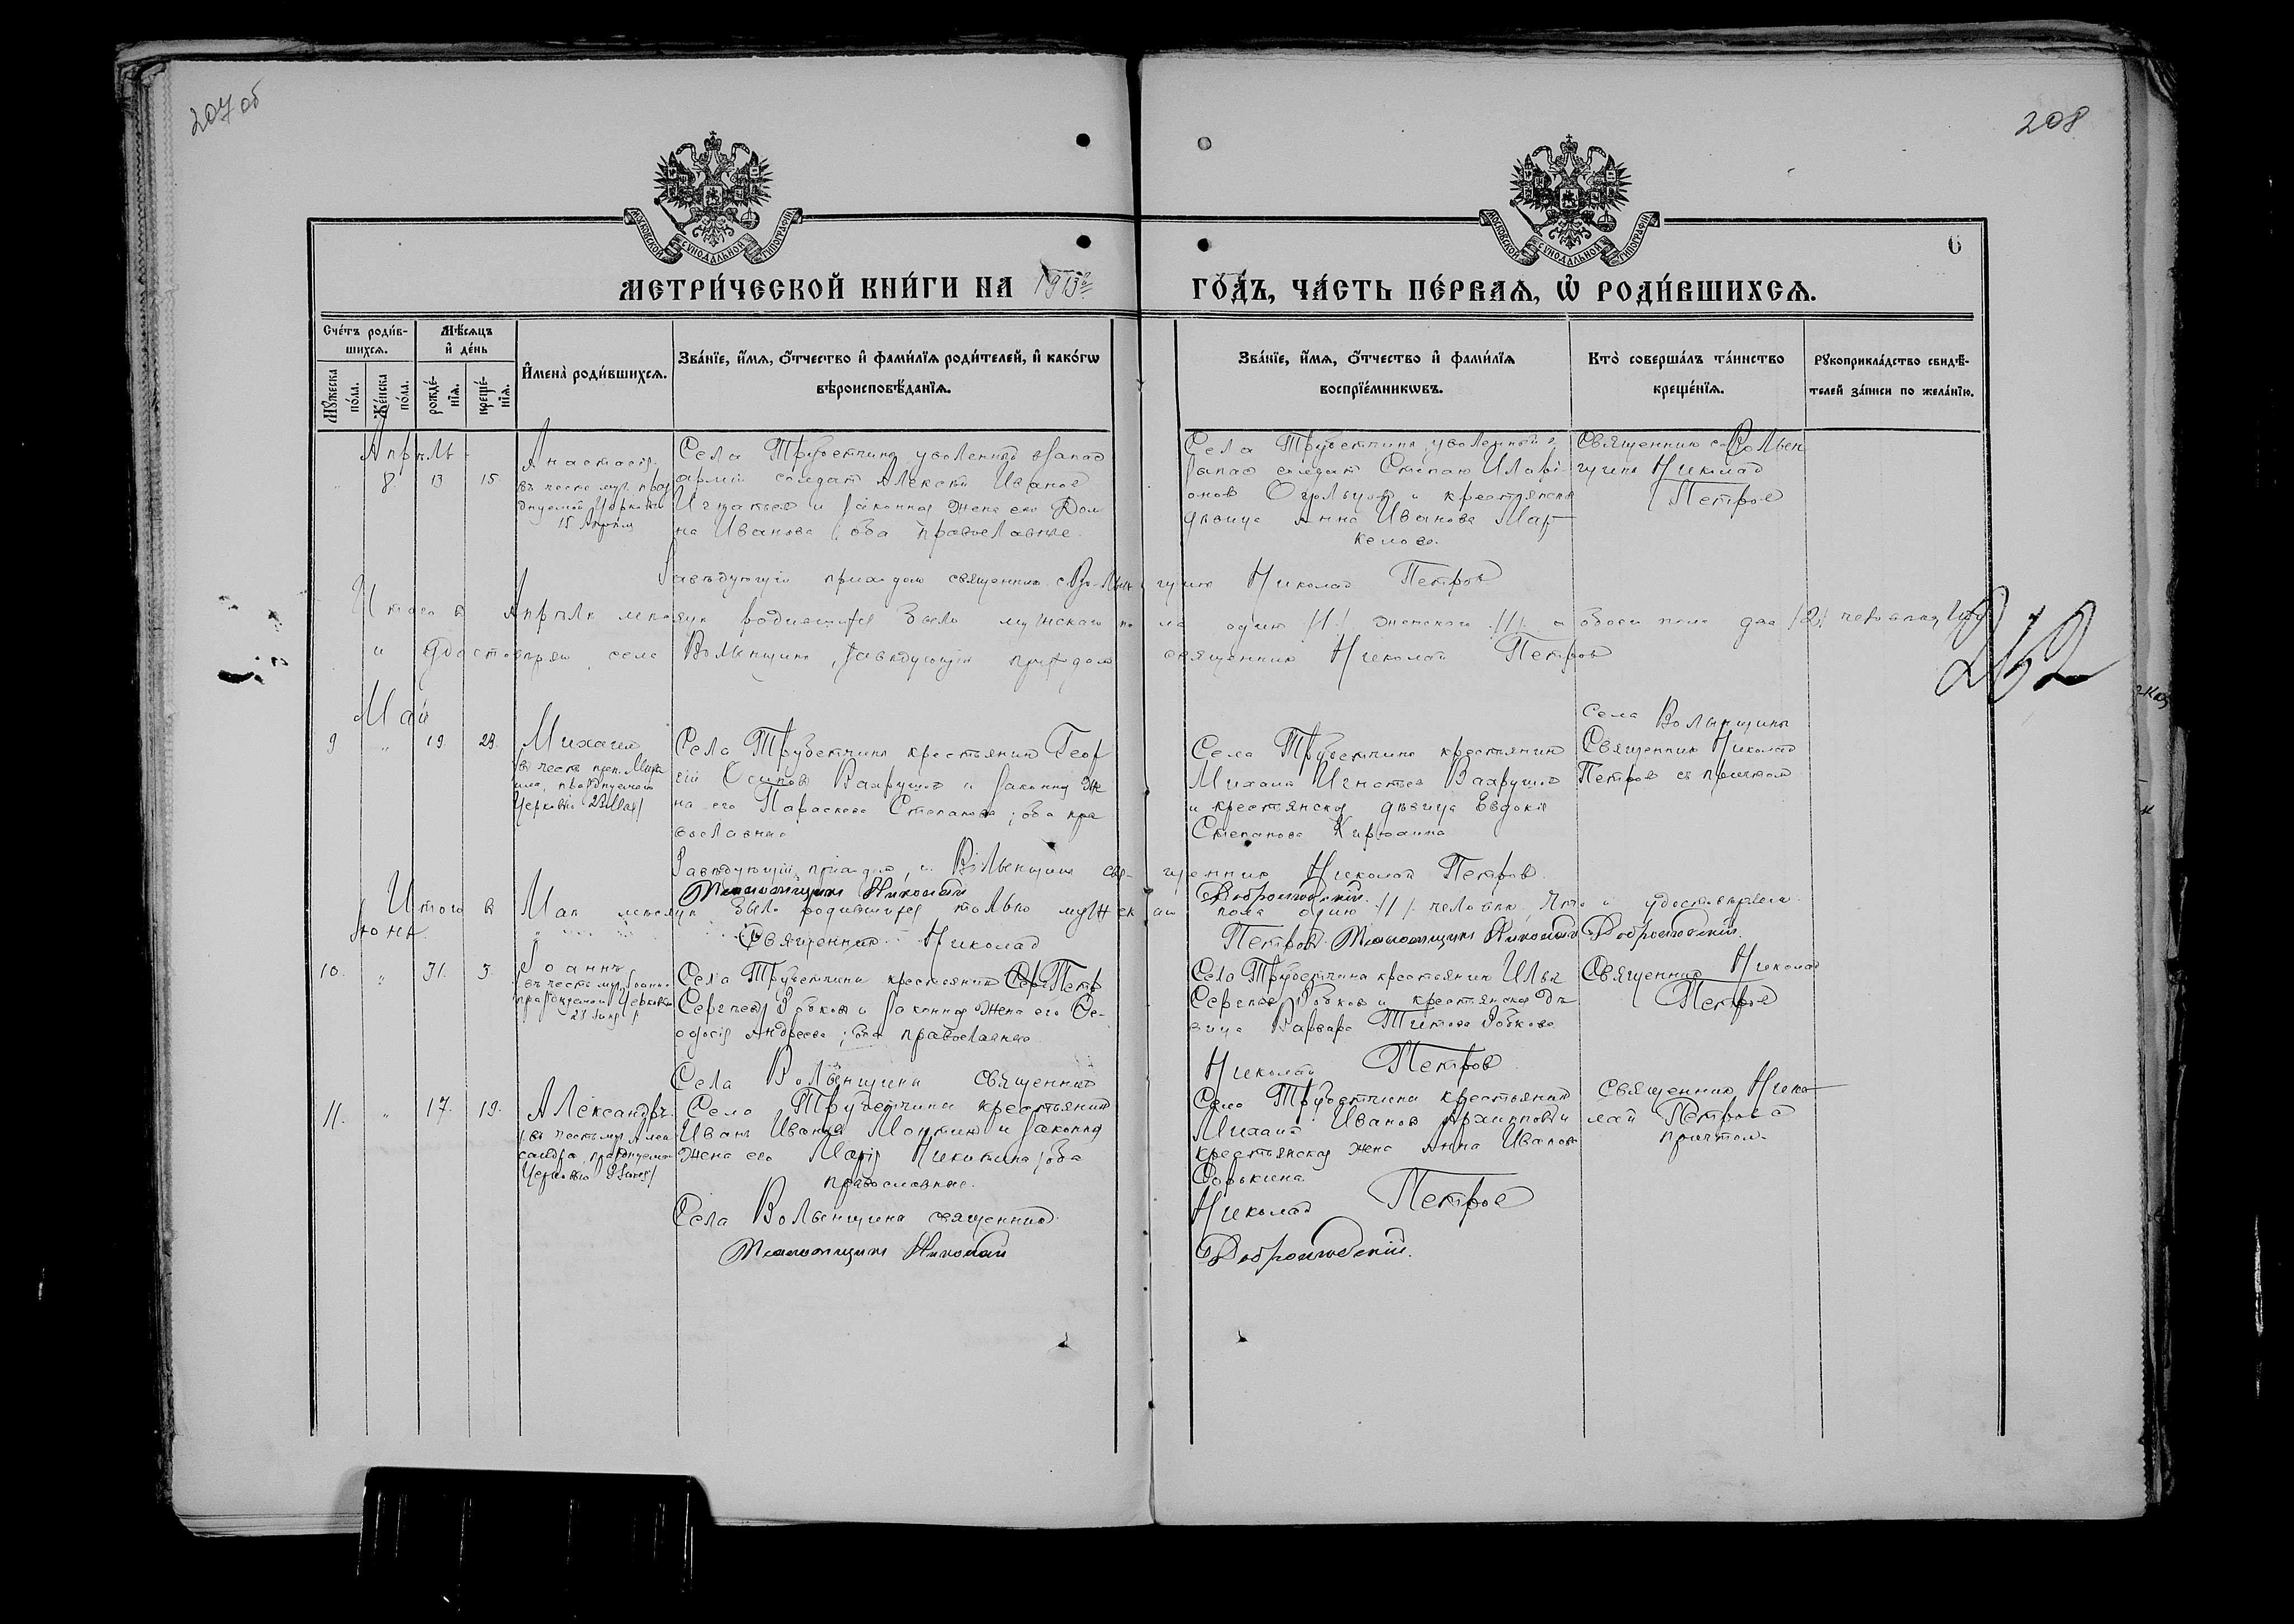 207 об
208
МОСКОВСКОЙ СУНОДАЛЬНОЙ ТИПОГРАФІИ
МОСКОВСКОЙ СУНОДАЛЬНОЙ ТИПОГРАФІИ
6
МЕТРИ́ЧЕСКОЙ КНИ́ГИ НА 1913 г
ГО́ДЪ, ЧА́СТЬ ПЕ́РВАѦ, Ѡ҆ РОДИ́ВШИХСѦ.
Сче́тъ роди́в-
шихсѧ.
Мꙋ́жеска по́ла.
Же́нска по́ла.
Мѣ́сѧцъ
и҆ де́нь
рожде́-
нїѧ.
креще́-
нїѧ.
И҆мена̀ роди́вшихсѧ.
Зва́нїе, и҆́мѧ, ѻ҆́тчество и҆ фами́лїѧ роди́телей, и҆ како́гѡ
вѣроисповѣ́данїѧ.
Зва́нїе, и҆́мѧ, ѻ҆́тчество и҆ фами́лїѧ
воспрїе́мникѡвъ.
Кто̀ соверша́лъ та́инство
креще́нїѧ.
Рꙋкоприкла́дство свидѣ́-
телей за́писи по жела́нїю.
Апрѣль
8 13 15
Анастасія
въ честь муч. праз
днуемой Церковію
15 Апрѣля
Села Трубетчина уволенный в запас
арміи солдат Алексѣй Иванов
Игнатьев и законная жена его Дом
на Иванова, оба православные.
Села Трубетчина уволенный в
запас солдат Степан Иларі-
онов и крестьянская
дѣвица Анна Иванова Мар
келова.
Священник с. Волын
щины Николай
Петров
Завѣдующій приходом священник с. Волын щины Николай Петров
Итого в Апрѣлѣ мѣсяцѣ родившихся было мужскаго по ла один /1/ женскаго /1/ а обоего пола два /2/ человѣка, что
и удостовѣряю села Волынщины, завѣдующій приходом священник Николай Петров
262
Май
9 „ 19. 23.
Михаил
въ честь преп. Миха
ила, празднуемаго
Церковію 23 Мая/
Села Трубетчина крестьянин Геор
гій Осипов Вахрушов и законная же
на его Параскева Степанова; оба пра
вославные
Села Трубетчина крестьянин
Михаил Игнатьев Вахрушов
и крестьянская дѣвица Евдокія
Степанова
Села Волынщины
Священник Николай
Петров съ причтом
Завѣдующій приходом, с. Волынщины свя- щенник Николай Петров.
Псаломщикъ Николай Добролюбскій.
Итого в Маѣ мѣсяцѣ было родившихся только мужскаго пола один /1/ человѣк, что и удостовѣряем
Священник Николай Петров. Псаломщикъ Николай Добролюбскій.
Іюнь
10. „ 31. 3.
Іоаннъ
/въ честь муч. Іоанна
празднуемой Церковію
Села Трубетчина крестьянин Петр
Сергѣев Зобков и законная жена его Ѳе-
одосія Андреева; оба православные
Села Трубетчина крестьянин Илья
Сергѣев Зобков и крестьянская дѣ-
вица Варвара Титова Зобкова
Священник Николай
Петров
Села Волынщины священник Николай Петров
11. „ 17. 19.
Александръ.
/въ честь муч. Алек
сандра, празднуемаго
Церковію
Села Трубетчина крестьянин
Иванъ Иванов и законная
жена его Марія Никитина; оба
православные.
Села Трубетчина крестьянин
Михаил Иванов Архиппов и
крестьянская жена Анна Иванова
Священник Нико
лай Петров с
причтом.
Села Волынщина священник Николай Петров
Псаломщикъ Николай Добролюбскій.